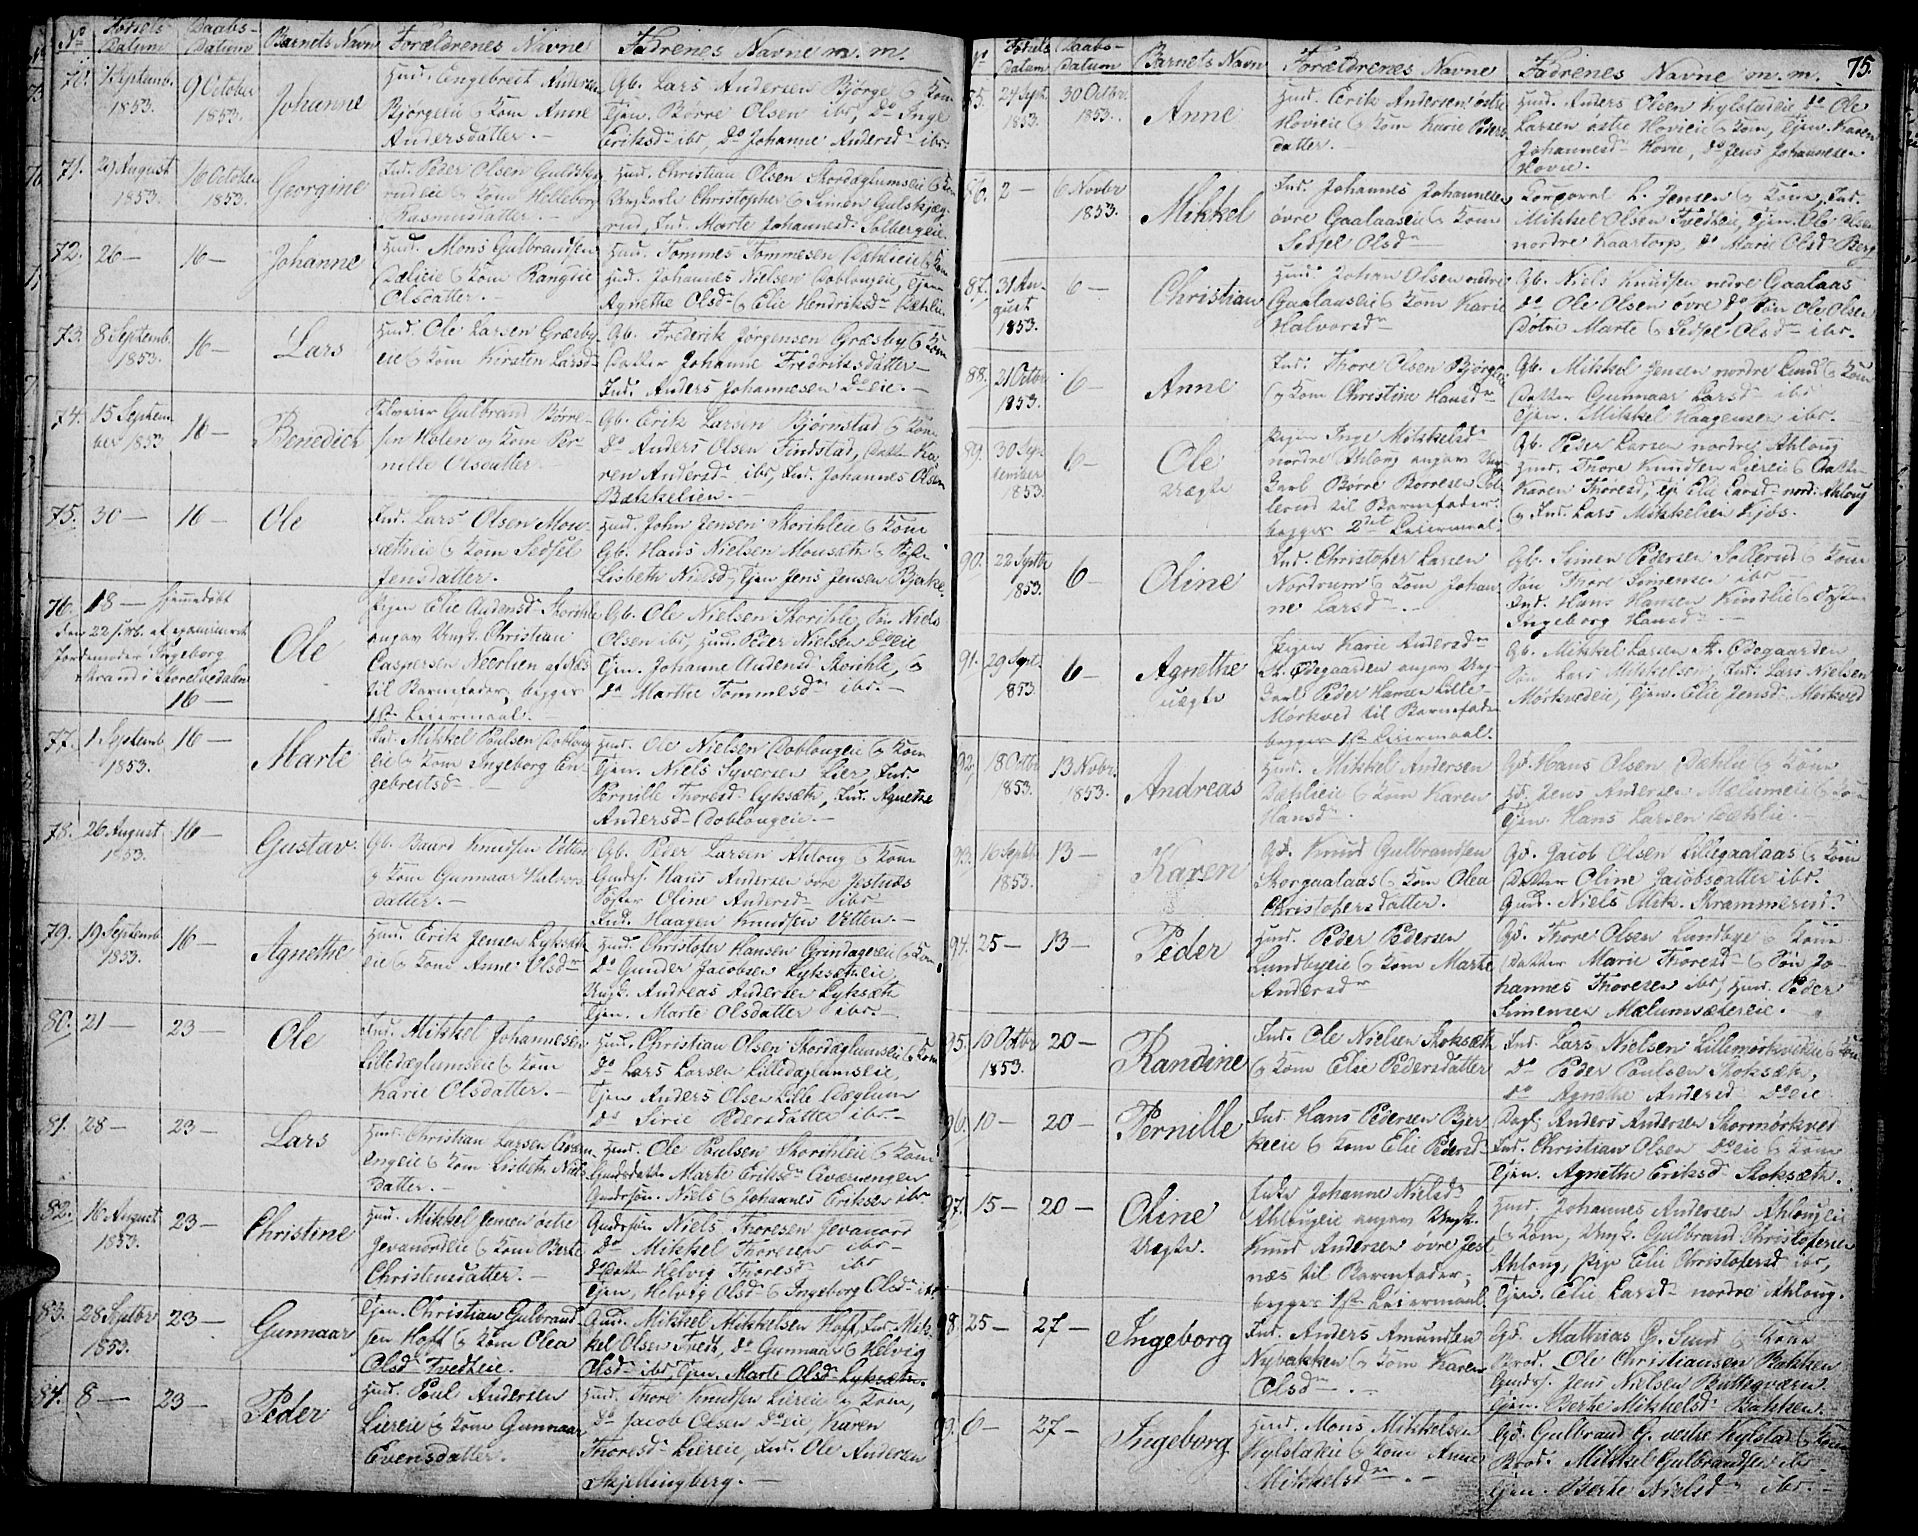 No Fødsels Datum Daabs-Datum Barnets Navn Forældrenes Navne Fadrenes Navne m. m.
70. 1 Septemb. 1853. 9 October 1853. Johanne
Hus. Engebret Andersen
Bjørgeeie & Kone Anne
Andersdatter. —
Gb. Lars Andersen Bjørge & Kone
Tjen. Børre Olsen ibr, Do Inge
Eriksd ibr, Do Johanne Andersd ibr.
71. 29 August 1853. 16 October 1853. Georgine
Ind. Peder Olsen
& Kone Helleborg
Rasmusdatter. —
Hus. Christian Olsen Stordæglumseie & Kone
Ungkarle Christopher & Simen
Ind. Marte Johannesd. Solbergeie
72. 26 — 16 — Johanne
Hus. Mons Gulbrandsen
Dælieie & Kone Rangdie
Olsdatter. —
Hus. Tommes Tommesen Dæhlieie & Kone
Hus. Johannes Nielsen Doblougeie, Tjen.
Agnethe Olsd & Elie Hendriksd Dæhlie
73. 8 Septemb. 1853. 16 — Lars
Hus. Ole Larsen Græsby-
eie & Kone Kirsten Larsd —
Gb. Frederik Jørgensen Græsby & Kone
Datter Johanne Fredriksdatter —
Ind. Anders Johannesen Do eie. —
74. 15 Septem ber 1853 16 — Benedict
Selveier Gulbrand Børre-
sen Holen og Kone Per-
nille Olsdatter —
Gb. Erik Larsen Bjørnstad & Kone
Do Anders Olsen Findstad, Datt. Ka
ren Andersd ibr, Ind. Johannes Olsen
Bakkelien. —
75. 30 — 16 — Ole
Ind. Lars Olsen Mou-
sætheie & Kone Sedsel
Jensdatter.
Hus. John Jensen Skorihleie & Kone
Gb. Hans Nielsen Mousæth & Søster
Lisbeth Nielsd, Tjen Jens Jensen Bjerke.
76. 18 — hjemmedøbt
den 22 s. M. af examineret
Jordemoder Ingeborg
Strand i Storelvedalen
16 — Ole
Pigen Elie Audensd Skorihle
angav Ungk. Christian
Caspersen Neerlien af Næs
til Barnefader, begges
1ste Leiermaal. —
Gb. Ole Nielsen Skorihle, Søn Niels
Olsen ibr, Hus. Peder Nielsen Do eie
Tjen. Johanne Audensd Skorihle, &
Do Marthe Tommesd ibr. —
77. 1 Septemb. 1853. 16 — Marte
Ind. Mikkel Poulsen Doblou-
eie & Kone Ingeborg En-
gebretsd —
Hus. Ole Nielsen Doblougeie & Kone
Tjen. Niels Syversen Lier, Ind.
Pernille Thoresd Lyksæth, Ind. Agnethe
Andersd Doblougeie. —
78. 26 August 1853. 16 — Gustav.
Gb. Baard Knudsen Vetten
& Kone Gunnaar Halvors
datter. —
Gb. Peder Larsen Ahloug & Kone
Gaards. Hans Andersen øvre Jestnæs
Søster Oline Andersd ibr —
Ind. Haagen Knudsen Vetten. —
79. 19 Septemb 1853. 16 — Agnethe
Hus. Erik Jensen Lyksæth-
eie & Kone Anne Olsd
Hus. Christofer Hansen Grindagereie & Kone
Do Gunder Jacobsen Lyksætheie
Ungk. Andreas Andersen Lyksæth
Tjen. Marte Olsdatter ibr. —
80. 21 — 23 — Ole
Ind. Mikkel Johannesen
Lilledæglumseie & Kone
Karie Olsdatter. —
Hus. Christian Olsen Stordæglumseie & Kone
Do Lars Larsen Lilledæglumseie,
Tjen Anders Olsen Lille Dæglum
Do Sirie Pedersdatter ibr. —
81. 28 — 23 — Lars
Hus. Christian Larsen
engeie & Kone Lisbeth Niels
datter. —
Hus. Ole Poulsen Skorihleie & Kone
Gaardsdatter Marte Eriksd
Gaardsøn. Niels & Johannes Eriksen ibr
82. 16 August 1853. 23 — Christine
Hus. Mikkel Jensen østre
Jevanordeie & Kone Berte
Christensdatter. —
Gaardsøn Niels Thoresen Jevanord
Do Mikkel Thoresen ibr —
Do Datter Helvig Thoresd ibr
Tjen, Helvig Olsd & Ingeborg Olsd ibr
83. 28 Septbr 1853. 23 — Gunnaar
Tjen. Christian Gulbrand
sen Hoff & Kone Olea
Olsd Tvedteie.
Gaards. Mikkel Mikkelsen Hoff, Ind. Mik-
kel Olsen Tvedt, Do Gunnaar & Helvig
Olsd ibr, Tjen. Marte Olsd Lyksæth.
84. 8 — 23 — Peder
Hus. Poul Andersen
Liereie & Kone Gunnaar
Evensdatter.
Hus. Thore Knudsen Liereie & Kone,
Do Jacob Olsen Do eie, Karen
Thoresd Liereie, Ind. Ole Andersen
Skjellingberg. —
75.
No Fødsels Datum Daabs-Datum Barnets Navn Forældrenes Navne Fadrenes Navne m. m.
85. 24 Sept. 1853. 30 Octbr. 1853. Anne
Hus. Erik Andersen østre
Hovieie & Kone Karie Peders
datter. —
Hus. Anders Olsen Kylstadeie, Do Ole
Larsen østre Hovieie & Kone, Tjen. Karen
Johannesd Hovie, Do Jens Johannesen
Hovie.
86. 2 — 6 Novbr 1853. Mikkel
Ind. Johannes Johannesen
øvre Gaalaaseie & Kone
Sedsel Olsd —
Corporal L. Jensen & Kone, Ind.
Mikkel Olsen Tvedteie, Tjen. Ole Olsen
nordre Kaatorp, Do Marie Olsd Berg
87. 31 Au-gust 1853. 6 — Christian
Hus. Johan Olsen nedre
Gaalaaseie & Kone Karie
Halvorsd
Gb. Niels Knudsen nedre Gaalaas
Do Ole Olsen øvre Do, Søn Ole Olsen
Døtre Marte & Sedsel Olsd ibr. —
88. 21 Octbr 1853. 6 — Anne
Ind. Thore Olsen Bjørge
& Kone Christine Hansd —
Gb. Mikkel Jensen nordre Lund & Kone
Datter Gunnaar Larsd ibr
Tjen. Mikkel Haagensen ibr.
89. 30 Sep-tember 1853. 6 — Ole Uægte
Pigen Inge Mikkelsd
nordre Ahloug angav Ung-
karl Børre Børresen Sol-
lerud til Barnefader.
begges 2det Leiermaal.
Gb. Peder Larsen nordre Ahloug
Hus. Thore Knudsen Liereie & Datter
Karen Thoresd, Tj. Elie Larsd nord. Ahloug
& Ind. Lars Mikkelsen
90. 22 Septbr 1853. 6 — Oline
Ind. Christofer Larsen
Nordrum & Kone Johan
ne Larsd —
Gb. Simen Pedersen Sollerud & Kone
Søn Thore Simensen ibr
Ind. Hans Hansen Kindlie & Søster
Ingeborg Hansd —
91. 29 Sept 1853. 6 — Agnethe uægte
Pigen Karie Andersd
St. Ødegaarden angav Ung-
karl Peder Hansen Lille-
Mørkved til Barnefader
begges 1ste Leiermaal.
Gb. Mikkel Larsen St. Ødegaarden
Søn Lars Mikkelsen, Ind. Lars Nielsen
Mørkvedeie, Tjen. Elie Jensd Mørkved
92. 18 Octbr 1853. 13 Novbr. 1853. Andreas
Hus. Mikkel Andersen
Dæhlieie & Kone Karen
Hansd.
Gd. Hans Olsen Dæhlie & Kone
Hd. Jens Andersen Mælumeie & Kone
Tjen. Hans Larsen Dæhlie. —
93. 16 Septbr 1853. 13 — Karen
Gd. Knud Gulbrandsen
Storgaalaas & Kone Olea
Christofersdatter.
Gd. Jacob Olsen Lillegaalaas & Kone
Datter Oline Jacobsdatter ibr.
Gaard. Niels Mik. Krammerud.
94. 25 — 13 — Peder
Hus. Peder Pedersen
Lundbyeie & Kone Marte
Andersd
Gd. Thore Olsen Lundbye & Kone
Datter Marie Thoresd & Søn Jo-
hannes Thoresen ibr, Hus. Peder
Simensen Mælumsætereie. —
95. 10 Octbr 1853. 20 — Randine
Ind. Ole Nielsen Stoksæth
& Kone Elie Pedersdatter
Ind. Lars Nielsen Lillemørkvedeie & Kone
Do Peder Poulsen Stoksæth,
Do Agnethe Andersd Do eie
96. 10 — 20 — Pernille
Ind. Hans Pedersen Bjer
keeie & Kone Elie Pedersd.
Anders Andersen Stormørkved
Ind. Christian Olsen Do eie & Kone
Tjen. Agnethe Eriksd Stoksæth.
97. 15 — 20 — Oline Uægte.
Enke Johanne Nielsd
Ahlougeie angav Ungk.
Knud Andersen øvre Jest
næs til Barnefader,
begges 1ste Leiermaal
Hus. Johannes Andersen Ahlougeie
& Kone, Ungk. Gulbrand Christofersen
Ahloug, Pige Elie Christofersd ibr,
Tjen. Elie Larsd nordre Ahloug.
98. 25 — 27 — Ingeborg
Ind. Anders Amundsen
Nybakken & Kone Karen
Olsd. —
Gd. Mathias G. Lund & Kone
Brod. Ole Christiansen Bakken
Gaards. Jens Nielsen Butteqværn
Tjen. Berte Mikkelsd Bakken. —
99. 6 — 27 — Ingeborg
Hus. Mons Mikkelsen
Kylstadeie & Kone Anne
Mikkelsd. —
Gd. Gulbrand G. vestre Kylstad & Kone
Brod. Mikkel Gulbrandsen ibr
Tjen. Berte Nielsd ibr. —